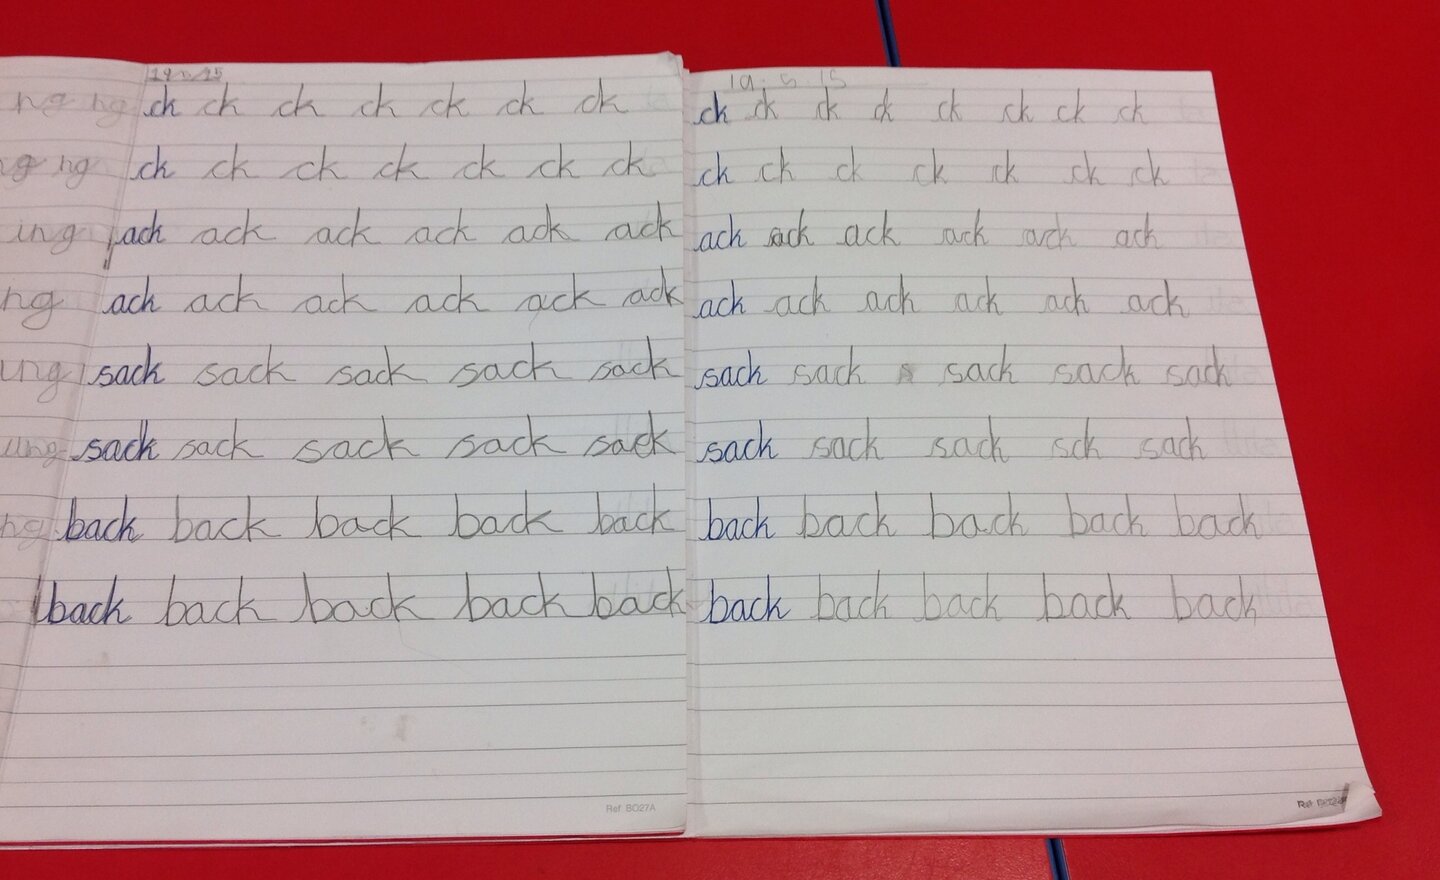 ng ng ck ck ck ck ck ck ck
ng ng ck ck ck ck ck ck ck
ing ack ack ack ack ack ack
ng ack ack ack ack ack ack
ung sack sack sack sack sack
ung sack sack sack sack sack
ng back back back back back
back back back back back
Ref BO27A
19.5.15
ck ck ck ck ck ck ck ck
ck ck ck ck ck ck ck
ack ack ack ack ack ack
ack ack ack ack ack ack
sack sack s sack sack sack
sack sack sack sck sack
back back back back back
back back back back back
Ref